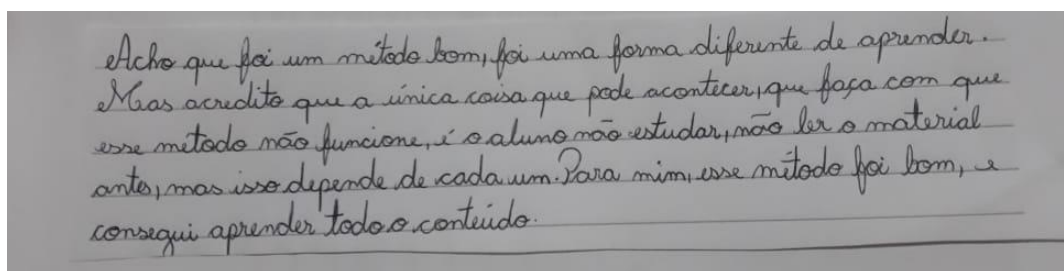 Acho que foi um método bom, foi uma forma diferente de aprender.
Mas acredito que a única coisa que pode acontecer, que faça com que
esse método não funcione, é o aluno não estudar, não ler o material
antes, mas isso depende de cada um. Para mim, esse método foi bom, e
consegui aprender todo o conteúdo.